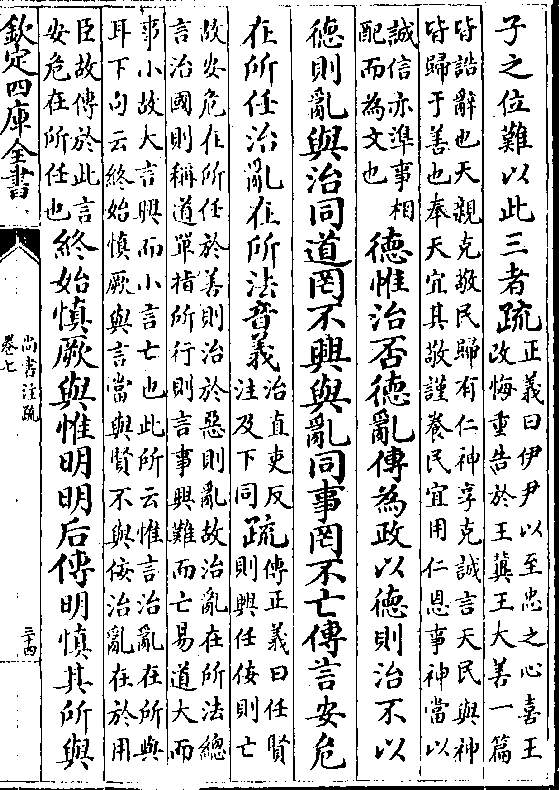 子之位難以此三者疏正義曰伊尹以至忠之心喜王
改悔重告於王冀王大善一篇
皆誥辭也天親克敬民歸有仁神享克誠言天民與神
皆歸于善也奉天宜其敬謹養民宜用仁恩事神當以
誠信亦準事相
配而為文也
德惟治否德亂傳為政以德則治不以
德則亂與治同道罔不興與亂同事罔不亡傳言安危
在所任治亂在所法音義治直吏反
注及下同
疏傳正義曰任賢
則興任佞則亡
故安危在所任於善則治於惡則亂故治亂在所法總
言治國則稱道單指所行則言事興難而亡易道大而
事小故大言興而小言亡也此所云惟言治亂在所與
耳下句云終始慎厥與言當與賢不與佞治亂在於用
臣故傳於此言
安危在所任也
終始慎厥與惟明明后傳明慎其所與
欽定四庫全書
尚書注疏
卷七
二十四